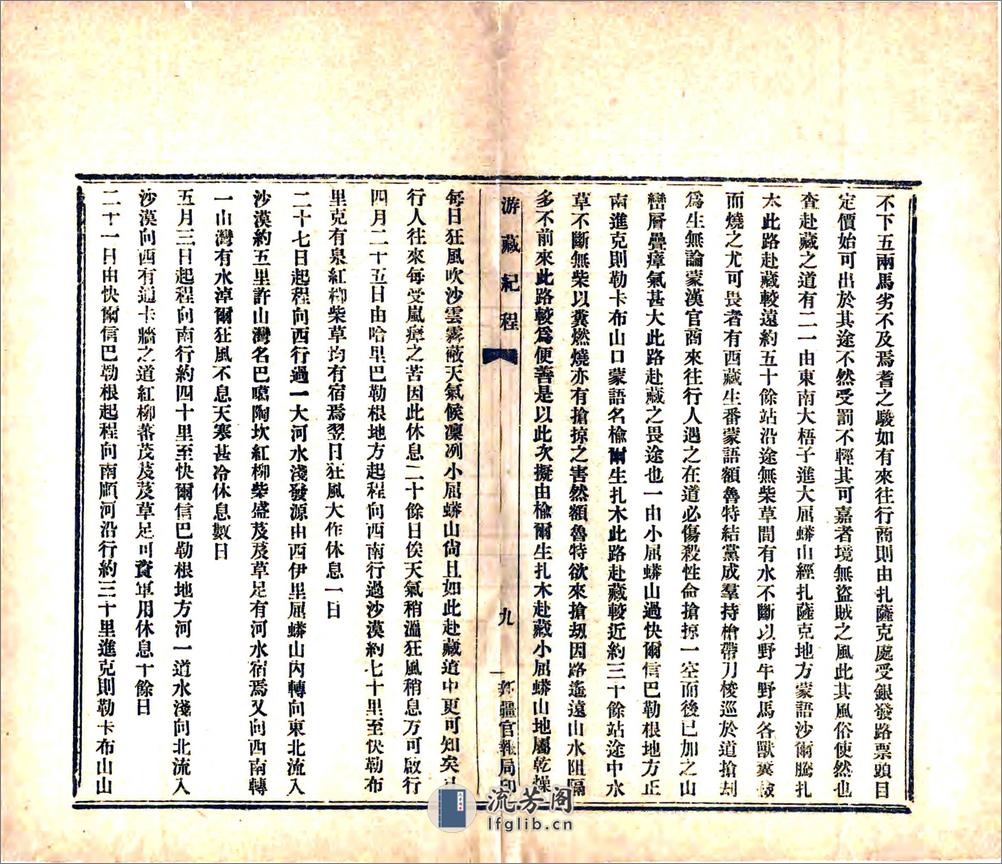 不下五兩馬劣不及焉耆之駿如有來往行商則由扎薩克處受銀發路票頭目
定價始可出於其途不然受罰不輕其可嘉者境無盜賊之風此其風俗使然也
查赴藏之道有二一由東南大梧子進大屈蟒山經扎薩克地方蒙語沙爾騰扎
太此路赴藏較遠約五十餘站沿途無柴草間有水不斷以野牛野馬各獸糞
而燒之尤可畏者有西藏生番蒙語額魯特結黨成羣持槍帶刀梭巡於道搶刦
爲生無論蒙漢官商來往行人遇之在道必傷殺性命搶掠一空而後已加之山
巒層疊瘴氣甚大此路赴藏之畏途也一由小屈蟒山過快爾信巴勒根地方正
南進克則勒卡布山口蒙語名楡爾生扎木此路赴藏較近約三十餘站途中水
草不斷無柴以糞燃燒亦有搶掠之害然額魯特欲來搶刼因路遙遠山水阻隔
多不前來此路較爲便善是以此次擬由楡爾生扎木赴藏小屈蟒山地屬乾燥
游藏紀程
九
新疆官報局印
每日狂風吹沙雲霧蔽天氣候凜冽小屈蟒山尙且如此赴藏道中更可知矣
行人往來每受嵐瘴之苦因此休息二十餘日俟天氣稍溫狂風稍息方可啟行
四月二十五日由哈里巴勒根地方起程向西南行過沙漠約七十里至快勒布
里克有泉紅柳柴草均有宿焉翌日狂風大作休息一日
二十七日起程向西行過一大河水淺發源由西伊里屈蟒山內轉向東北流入
沙漠約五里許山灣名巴噶陶坎紅柳柴盛芨芨草足有河水宿焉又向西南轉
一山灣有水淖爾狂風不息天寒甚冷休息數日
五月三日起程向南行約四十里至快爾信巴勒根地方河一道水淺向北流入
沙漠向西有通卡牆之道紅柳蕃茂芨芨草足可資軍用休息十餘日
二十一日由快爾信巴勒根起程向南順河沿行約三十里進克則勒卡布山山
流芳阁
lfglib.cn